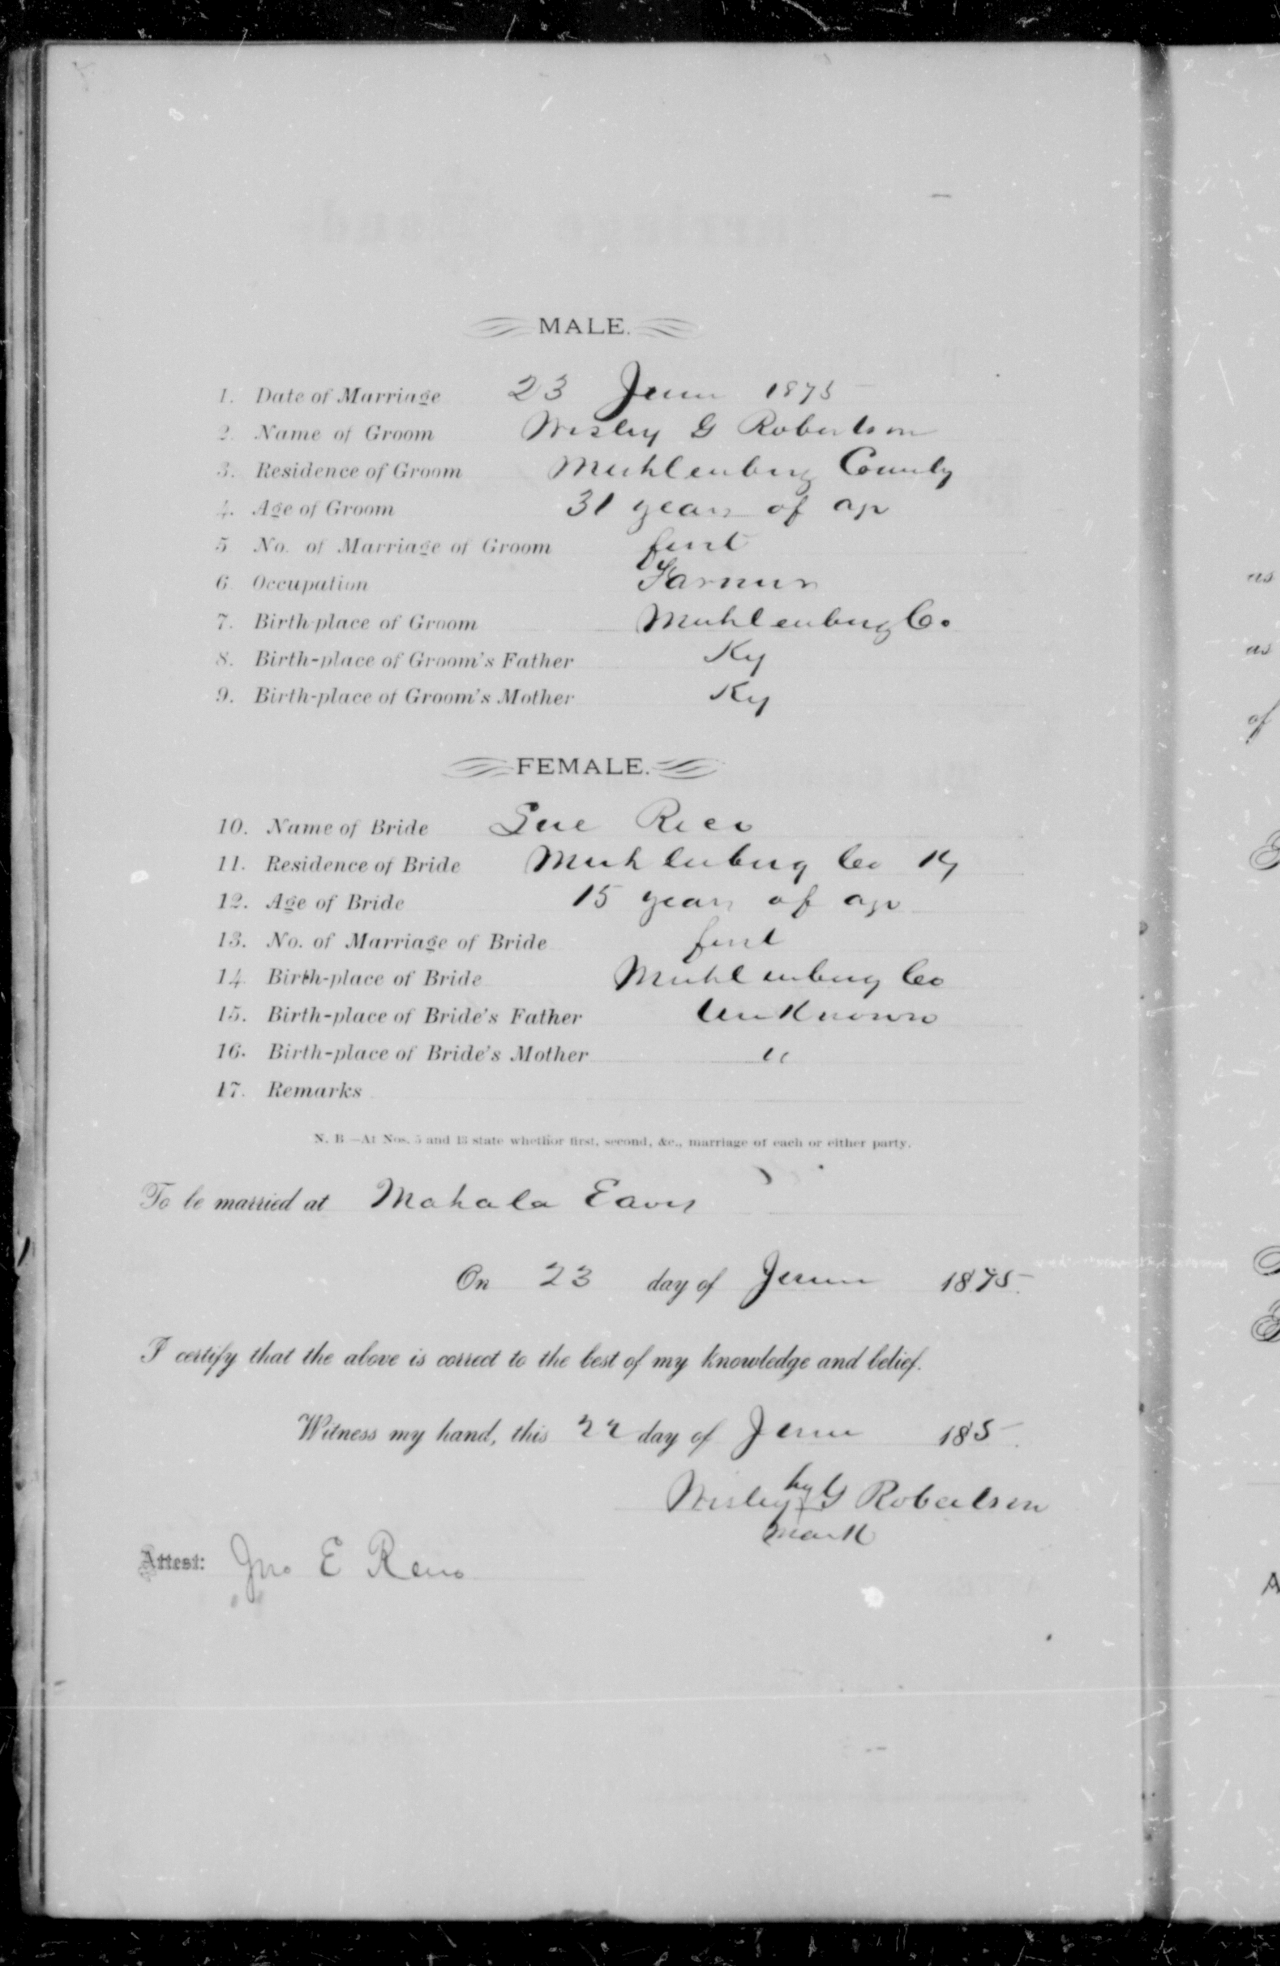 MALE.
1. Date of Marriage 23 June 1875
2. Name of Groom Wesley G Robertson
3. Residence of Groom Muhlenburg County
4. Age of Groom 31 years of age
5 No. of Marriage of Groom first
6 Occupation Farmer
7. Birth-place of Groom Muhlenburg Co
8. Birth-place of Groom's Father Ky
9. Birth-place of Groom's Mother Ky
FEMALE.
10. Name of Bride Sue Rice
11. Residence of Bride Muhlenburg Co Ky
12. Age of Bride 15 years of age
13. No. of Marriage of Bride first
14. Birth-place of Bride Muhlenburg Co
15. Birth-place of Bride's Father Unknown
16. Birth-place of Bride's Mother "
17. Remarks
N. B.—At Nos. 5 and 13 state whether first, second, &c., marriage of each or either party.
To be married at Mahala Eaves
On 23 day of June 1875.
I certify that the above is correct to the best of my knowledge and belief.
Witness my hand, this 22 day of June 185
Wesley G Robertson
mark
Attest: Jno E Reno
as
as
of